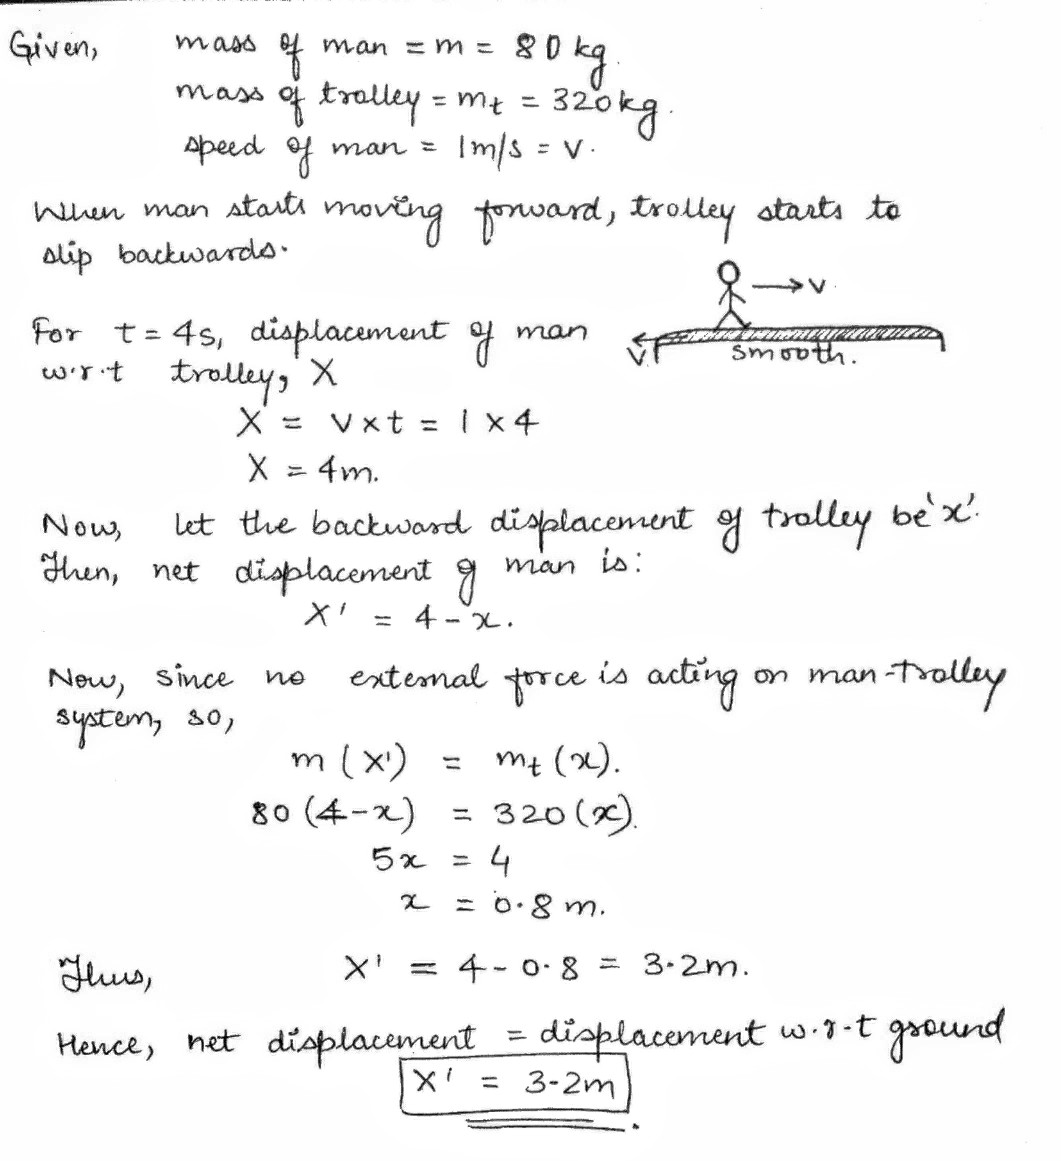 Given, mass of man = m = 80 kg.
mass of trolley = mt = 320 kg.
speed of man = 1m/s = v.
When man starts moving forward, trolley starts to
slip backwards.
→ v
For t = 4s, displacement of man
v' smooth.
w.r.t trolley, X
X = v x t = 1 x 4
X = 4m.
Now, let the backward displacement of trolley be 'x'.
Then, net displacement of man is:
X' = 4 - x.
Now, since no external force is acting on man-trolley
system, so,
m (X') = mt (x).
80 (4-x) = 320 (x).
5x = 4
x = 0.8 m.
Thus, X' = 4 - 0.8 = 3.2m.
Hence, net displacement = displacement w.r.t ground
X' = 3.2m